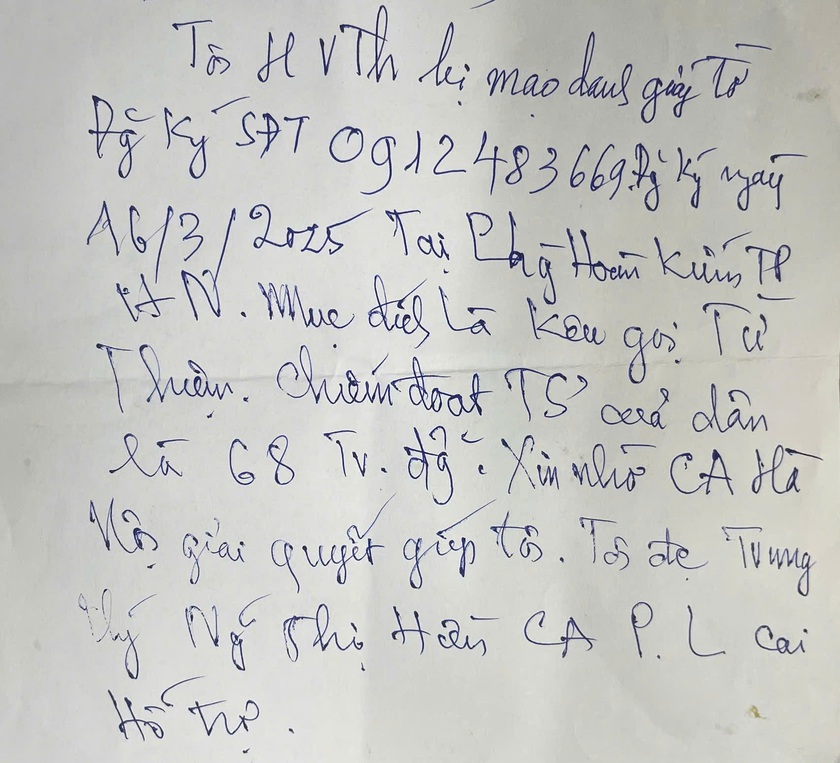 Tôi H V Th bị mạo danh giấy tờ
Đg Ký SĐT 0912483669 Đg Ký ngày
16/3/2025 Tại Phg Hoàn Kiếm TP
HN. Mục đích là Kêu gọi Từ
Thiện. Chiếm đoạt TS của dân
là 68 Tr. đg. Xin nhờ CA Hà
Nội giải quyết giúp tôi. Tôi đc Trung
Ng Thị CA P. L Cai
Hỗ trợ.